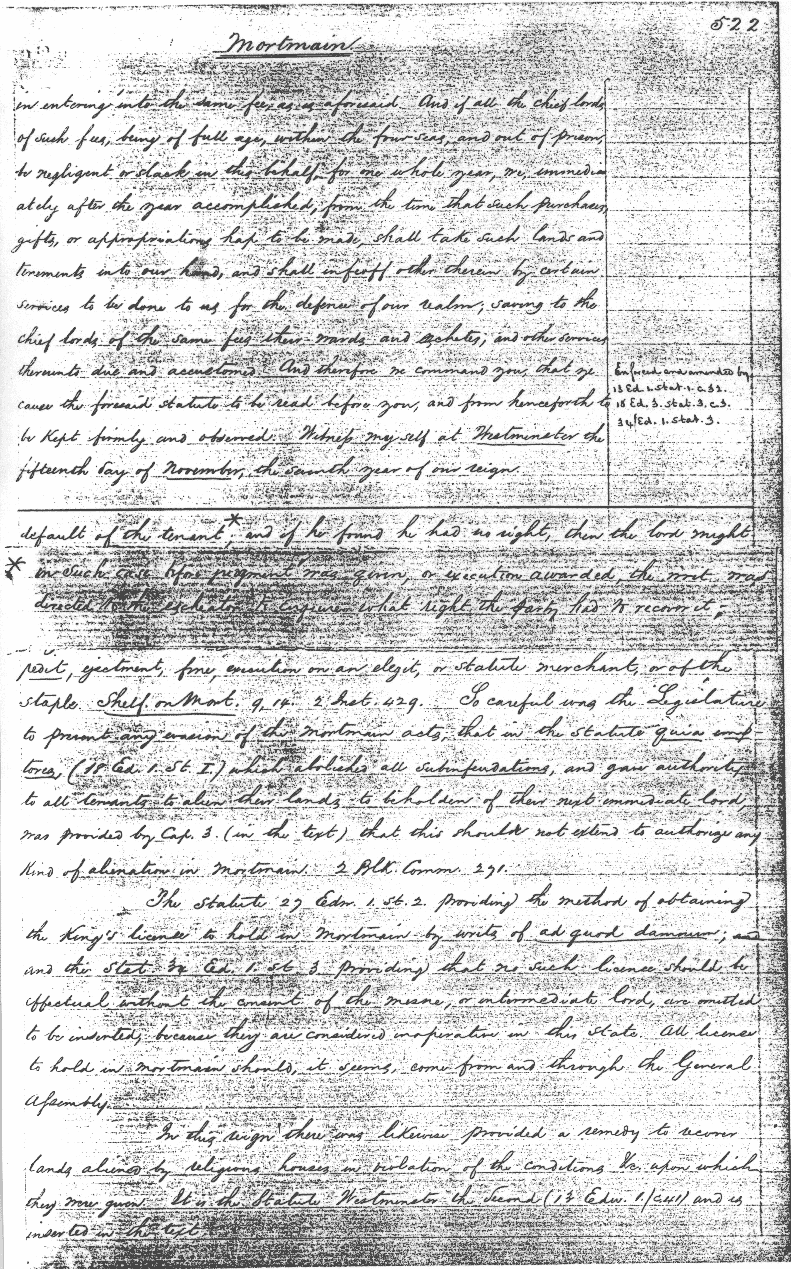 522
Mortmain
in entering into the same fee, as is aforesaid. And if all the chief lords
of such fees, being of full age, within the four seas, and out of prison,
be negligent or slack in this behalf, for one whole year, we, immedi
ately after the year accomplished, from the time that such purchases,
gifts, or appropriations hap to be made, shall take such lands and
tenements into our hand, and shall infeoff other therein by certain
services to be done to us for the defence of our realm; saving to the
chief lords of the same fees their wards and eschetes, and other services
thereunto due and accustomed. And therefore we command you, that ye
cause the foresaid statute to be read before you, and from henceforth to
be kept firmly and observed. Witness myself at Westminster the
fifteenth day of November, the seventh year of our reign.
Enforced and amended by
13 Ed. 1. Stat. 1. c. 32.
18 Ed. 3. Stat. 3. c. 3.
34 Ed. 1. Stat. 3.
default of the tenant*, and if he found he had no right, then the lord might
* in such case before judgment was given, or execution awarded, the writ was
directed to the escheator to enquire what right the party had to recover it;
pedit, ejectment, fine, execution on an elegit, or statute merchant, or of the
staple. Shelf. on Mort. 9, 14. 2 Inst. 429. So careful was the Legislature
to prevent any evasion of the mortmain acts, that in the statute quia emp
tores, (18 Ed. 1. St. I.) which abolished all subinfeudations, and gave authority
to all tenants to alien their lands to be holden of their next immediate lord,
was provided by Cap. 3. (in the text) that this should not extend to authorize any
kind of alienation in mortmain. 2 Blk. Comm. 271.
The Statute 27 Edw. 1. St. 2. providing the method of obtaining
the King's license to hold in mortmain by writs of ad quod damnum; and
and the Stat. 34 Ed. 1. St 3 providing that no such license should be
effectual without the consent of the mesne, or intermediate lord, are omitted
to be inserted, because they are considered inoperative in this state. All license
to hold in mortmain should, it seems, come from and through the General
Assembly.
In this reign there was likewise provided a remedy to recover
lands aliened by religious houses in violation of the conditions &c. upon which
they were given. It is the Statute Westminster the Second (13 Edw. 1. c. 41) and is
inserted in the text